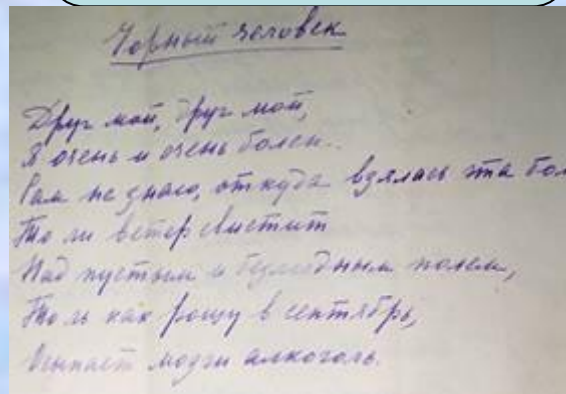 Чорный человек
Друг мой, друг мой,
Я очень и очень болен.
Сам не знаю, откуда взялась эта бол
То ли ветер свистит
Над пустым и безлюдным полем,
То ль как рощу в сентябрь,
Осыпает мозги алкоголь.